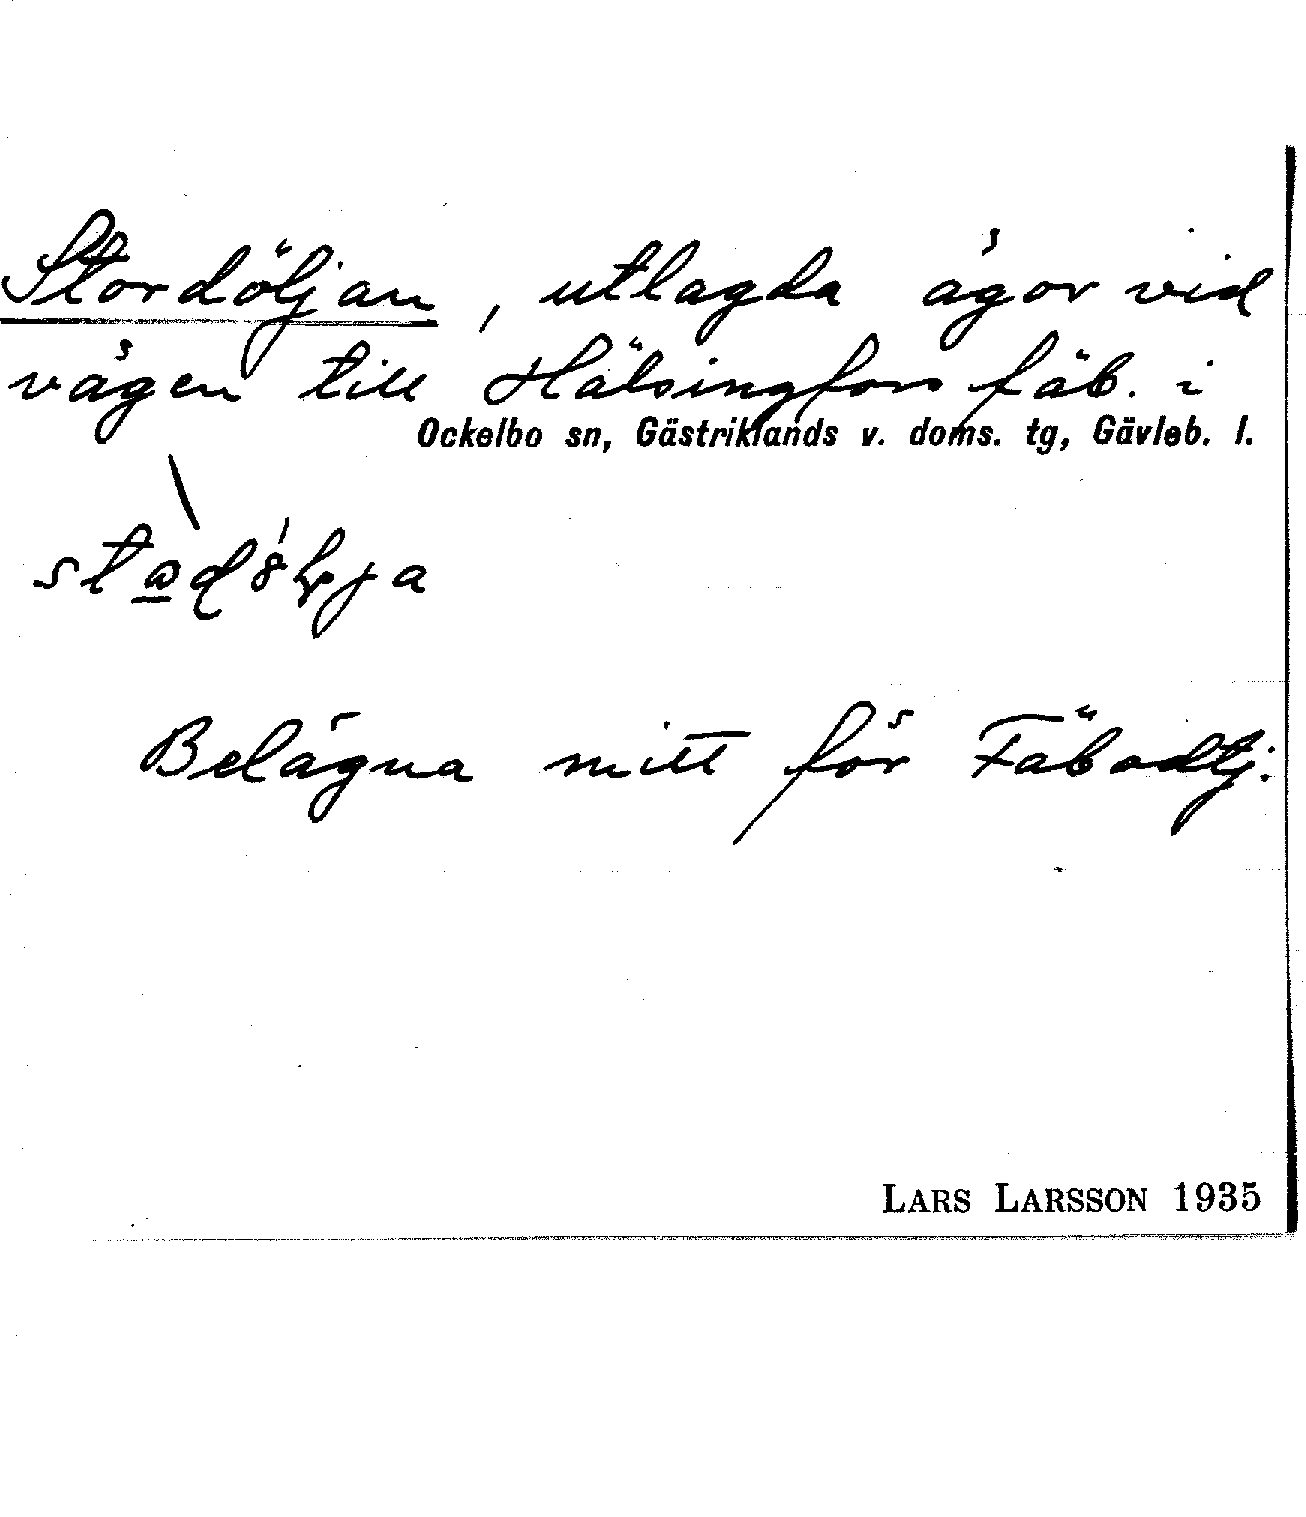 Stordöljan, utlagda ägor vid
vägen till Hälsingfors fäb. i
Ockelbo sn, Gästriklands v. doms. tg, Gävleb. l.
Belägna mitt för Fäbodtj.
LARS LARSSON 1935